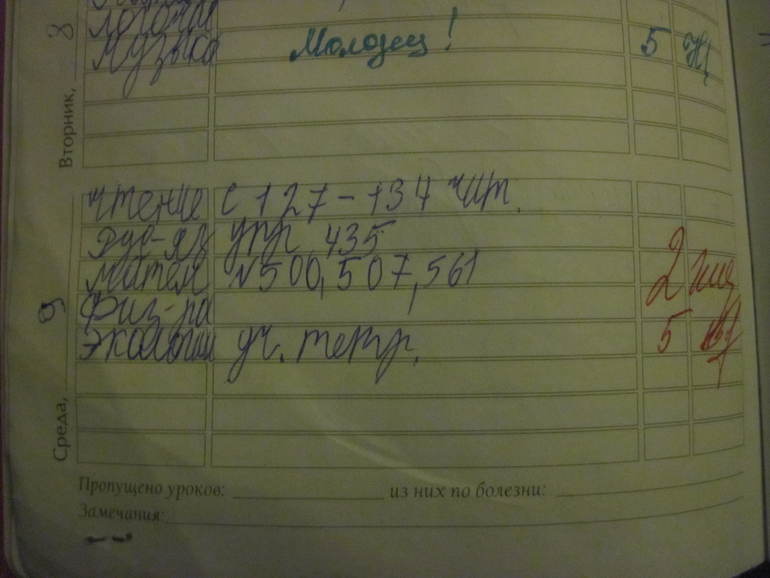 Музыка Молодец! 5
Вторник, 8
чтение с 127-134 чит.
Рус-яз упр 435
Матем №500,507,561 2
Физ-ра
Экология уч. тетр. 5
Среда, 9
Пропущено уроков: из них по болезни:
Замечания: